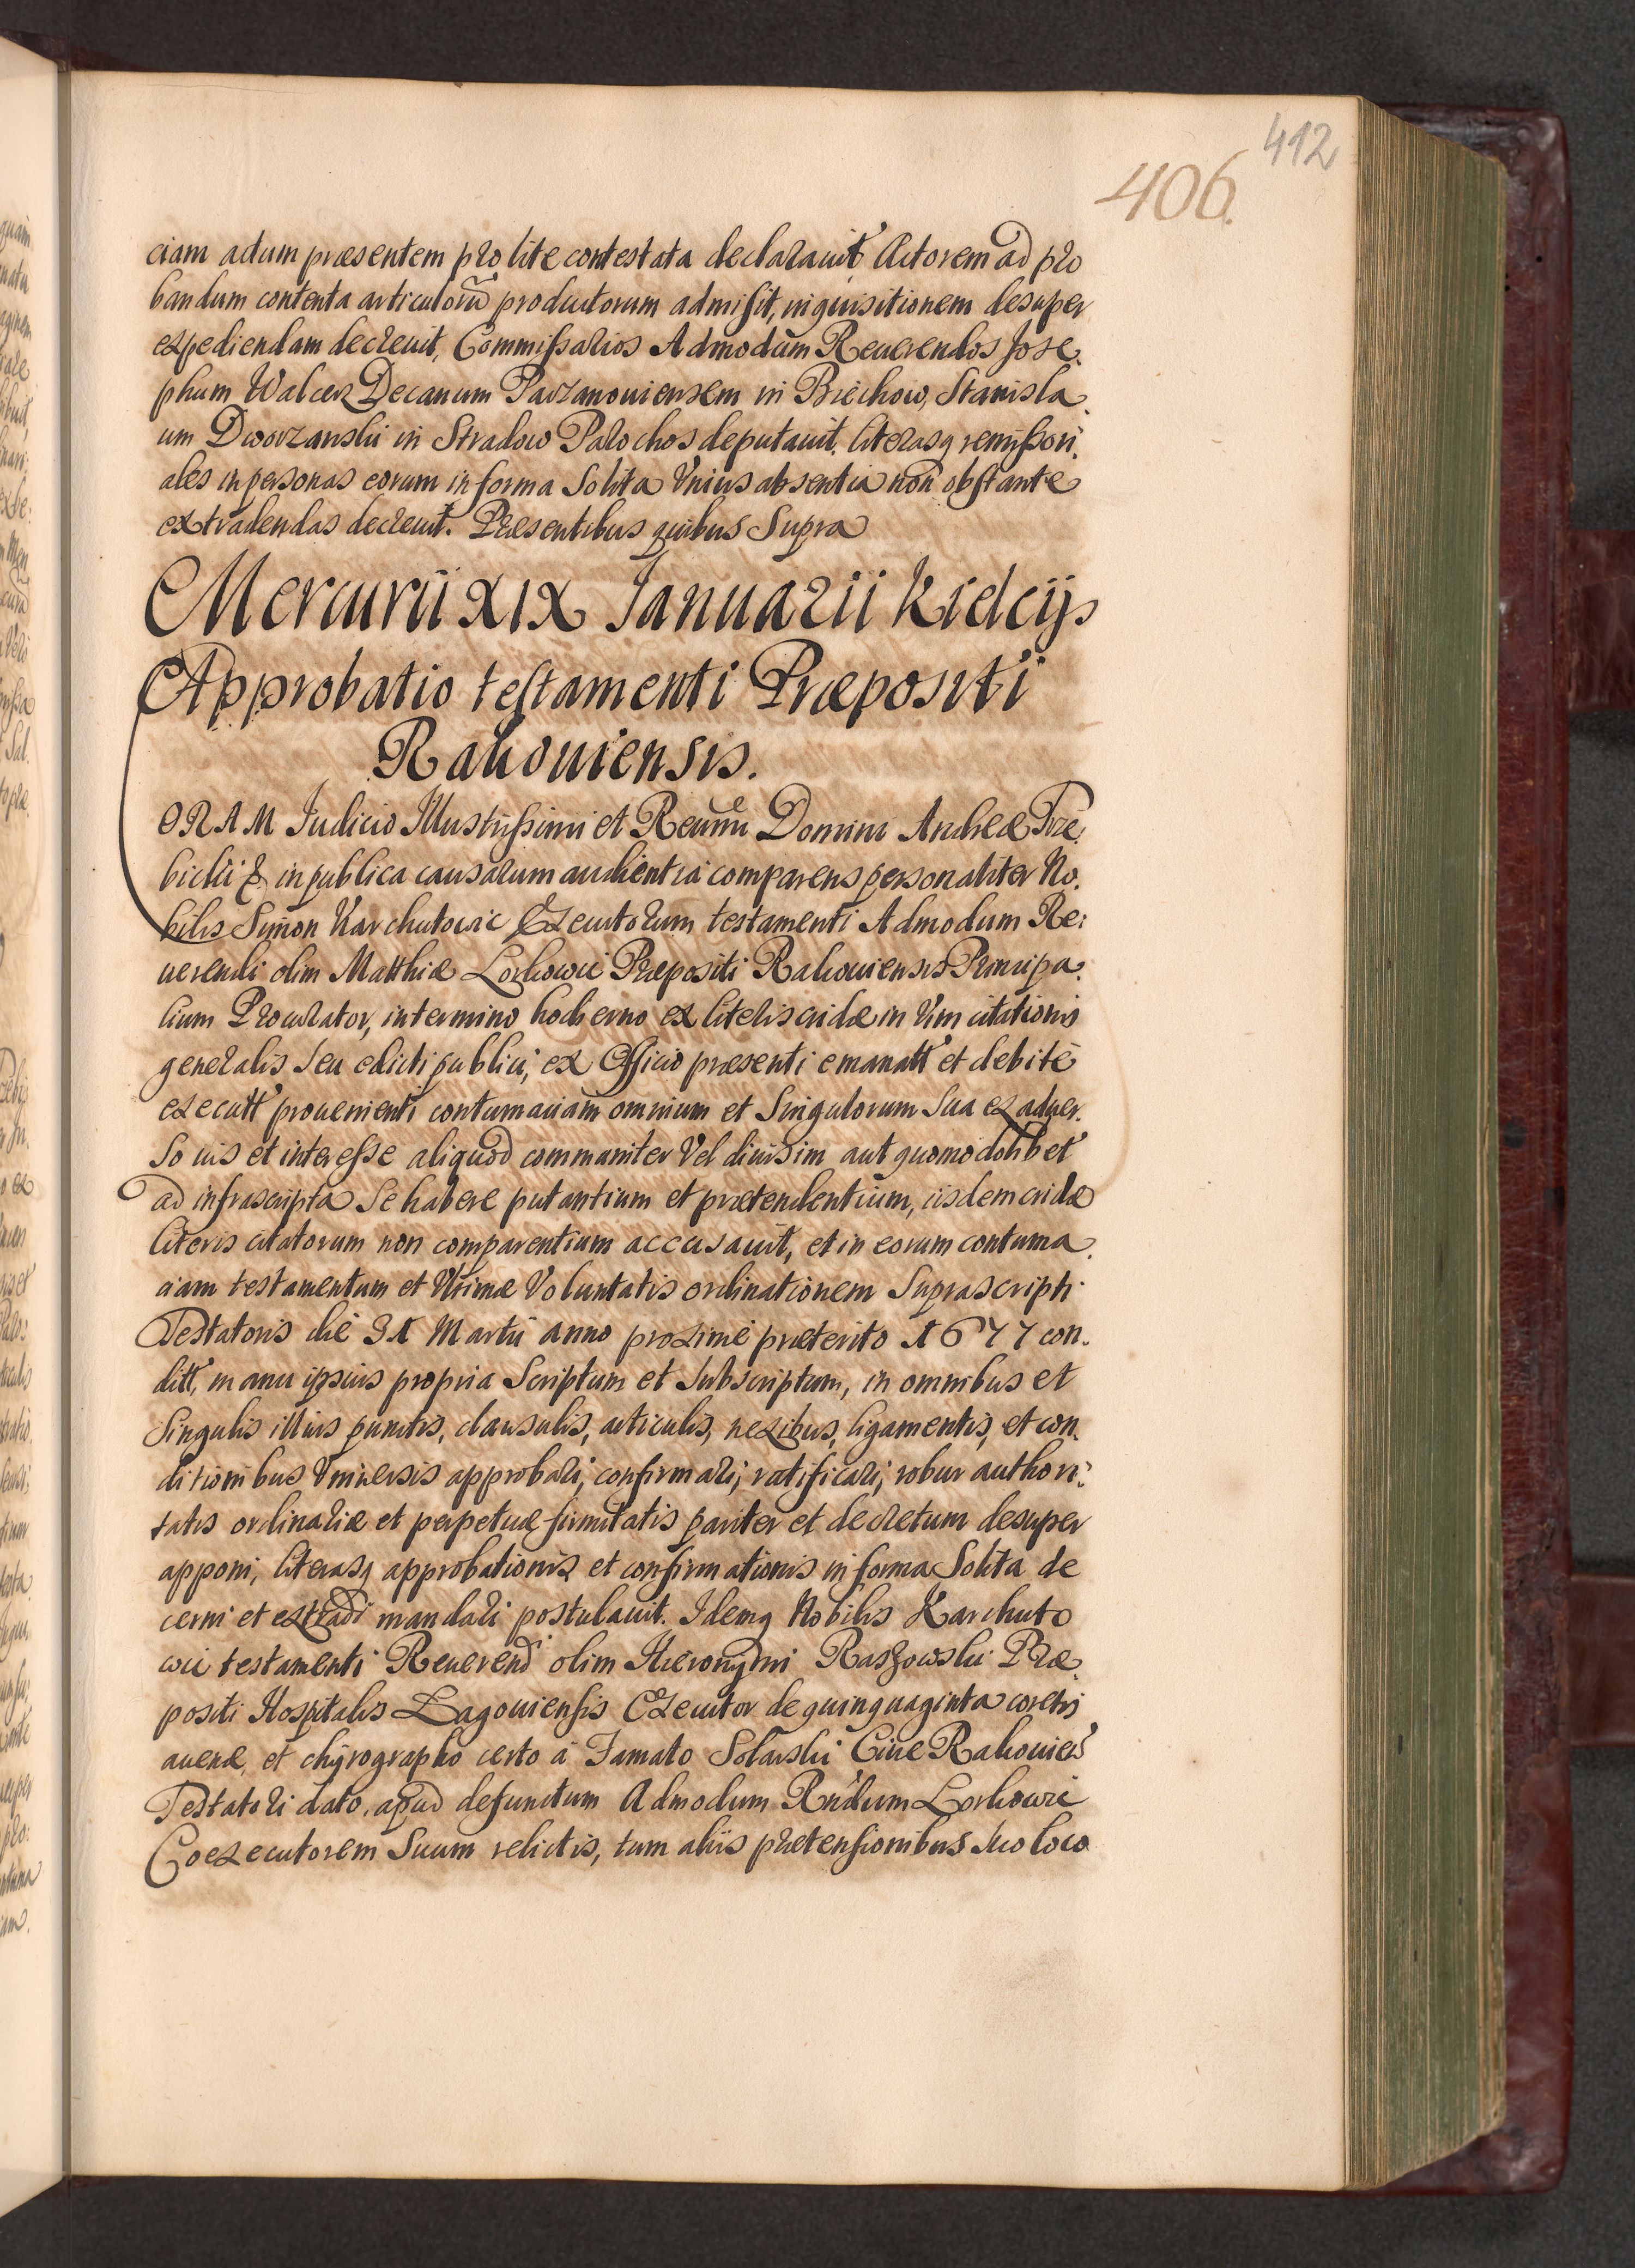 412
406.
ciam actum præsentem pro lite contestata declarauit Actorem ad pro
bandum contenta articulorũ productorum admisit, inquisitionem desuper
expediendam decreuit, Commissarios Admodum Reuerendos Jose.
phum Walcer Decanum Paczanouiensem in Biechow, Stanisla.
um Dworzanski in Stradow Parochos deputauit, literasq remissori.
ales in personas eorum in forma solita Vnius absentia non obstante
extradendas decreuit. Præsentibus quibus Supra
Mercurii XIX Januarii Kielcijs
Approbatio testamenti Præpositi
Rakouiensis.
CORAM Judicio Illustrissimi et Reuerñ Domini Andreæ Trze.
bicki & in publica causarum audientia comparens personaliter No.
bilis Simon Karchutowic Executorum testamenti Admodum Re:
uerendi olim Matthiæ Lorkowic Præpositi Rakouiensis Principa.
lium Procurator, in termino hodierno ex literis cridæ in Vim citationis
generalis seu edicti publici, ex Officio præsenti emanatt et debitè
executt prouenienti contumaciam omnium et Singulorum Sua ex aduer.
so ius et interesse aliquod communiter Vel diuisim aut quomodolibet
ad infrascripta Se habere putantium et prætendentium, iisdem cridæ
literis citatorum non comparentium accusauit, et in eorum contuma.
ciam testamentum et Vltimæ Voluntatis ordinationem Suprascripti
Testatoris die 31 Martii anno proxime præterito 1677 con.
ditt, manu ipsius propria Scriptum et Subscriptum, in omnibus et
Singulis illius punctis, clausulis, articulis, nexibus, ligamentis, et con.
ditionibus Vniuersis approbari, confirmari, ratificari, robur authori.
tatis ordinariæ et perpetuæ firmitatis pariter et decretum desuper
apponi, literasq approbationis et confirmationis in forma Solita de
cerni et extradi mandari postulauit. Idemq Nobilis Karchuto
wic testamenti Reuerend olim Hieronymi Raszowski Præ.
positi Hospitalis Lagouiensis Executor de quinquaginta coretis
auenæ, et chyrographo certo à Famato Solarski Ciue Rakouien
Testatori dato, apud defunctum Admodum Rñdum Lorkowic
Coexecutorem Suum relictis, tum aliis prætensionibus suo loco